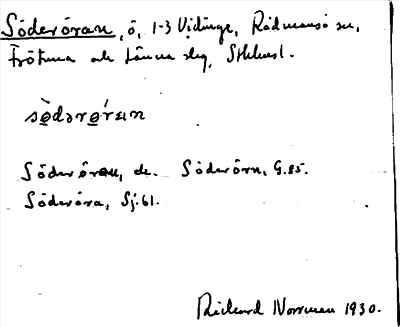 Söderöran, ö, 1-3 Vidinge, Rådmansö sn,
Frötuna och Länna slg, Sthlmsl.
Söderöran, de. Söderörn, G.85.
Söderöra, Sj.61.
Rickard Norrman 1930.